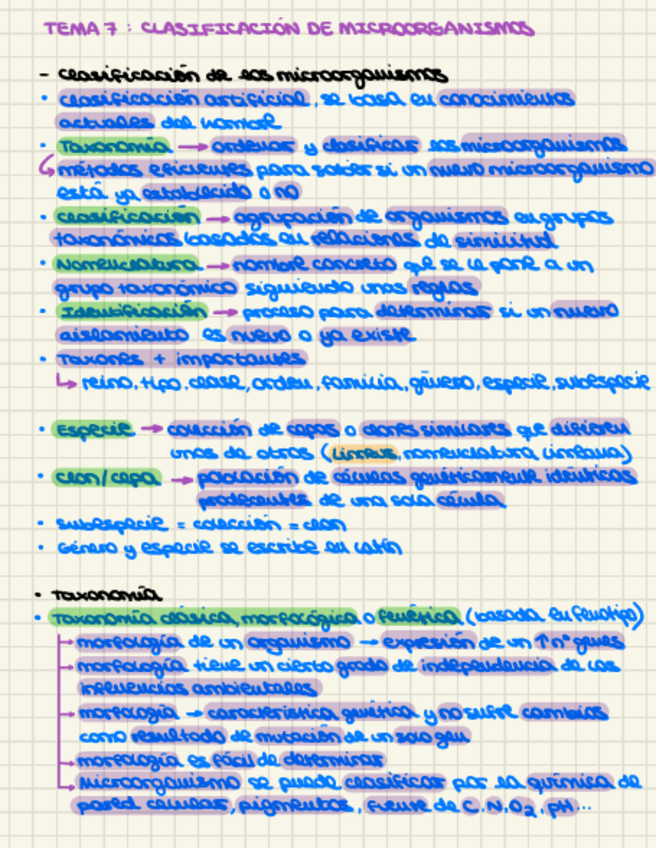 TEMA 7 : CLASIFICACIÓN DE MICROORGANISMOS
- clasificación de los microorganismos
• clasificación artificial, se basa en conocimientos
actuales del hombre
• Taxonomía → ordenar y clasificar los microorganismos
métodos eficientes para saber si un nuevo microorganismo
está ya establecido o no
• clasificación → agrupación de organismos en grupos
taxonómicos basados en relaciones de similitud
• Nomenclatura → nombre concreto que se le pone a un
grupo taxonómico siguiendo unas reglas
• Identificación → proceso para determinar si un nuevo
aislamiento es nuevo o ya existe
• Taxones + importantes
↳ reino, tipo, clase, orden, familia, género, especie, subespecie
• Especie → colección de cepas o clones similares que difieren
unas de otras (Linneus, nomenclatura linneana)
• clon/cepa → población de células genéticamente idénticas
procedentes de una sola célula
• subespecie = colección = clon
• Género y especie se escribe en latín
• Taxonomía
• Taxonomía clásica, morfológica o fenética (basada en fenotipo)
→ morfología de un organismo → expresión de un ↑ nº genes
→ morfología tiene un cierto grado de independencia de las
influencias ambientales
→ morfología → característica genética y no sufre cambios
como resultado de mutación de un solo gen
→ morfología es fácil de determinar
→ Microorganismo se puede clasificar por la química de
pared celular, pigmentos, fuente de C, N, O₂, pH...